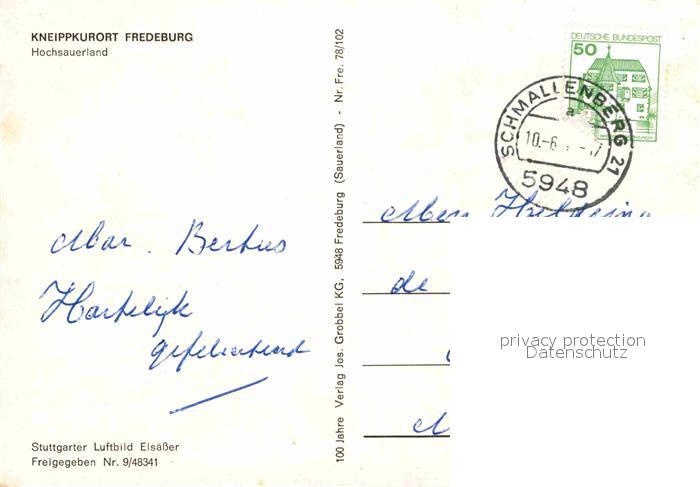 KNEIPPKURORT FREDEBURG
Hochsauerland
Mar. Bertus
Hartelijk
gefeliciteerd
Stuttgarter Luftbild Elsäßer
Freigegeben Nr. 9/48341
100 Jahre Verlag Jos. Grobbel KG, 5948 Fredeburg (Sauerland) - Nr. Fre. 78/102
DEUTSCHE BUNDESPOST
50
SCHMALLENBERG 21
a
10.-6.
5948
de
privacy protection
Datenschutz